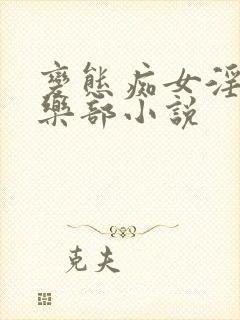 變態痴女淫
樂部小説
克夫